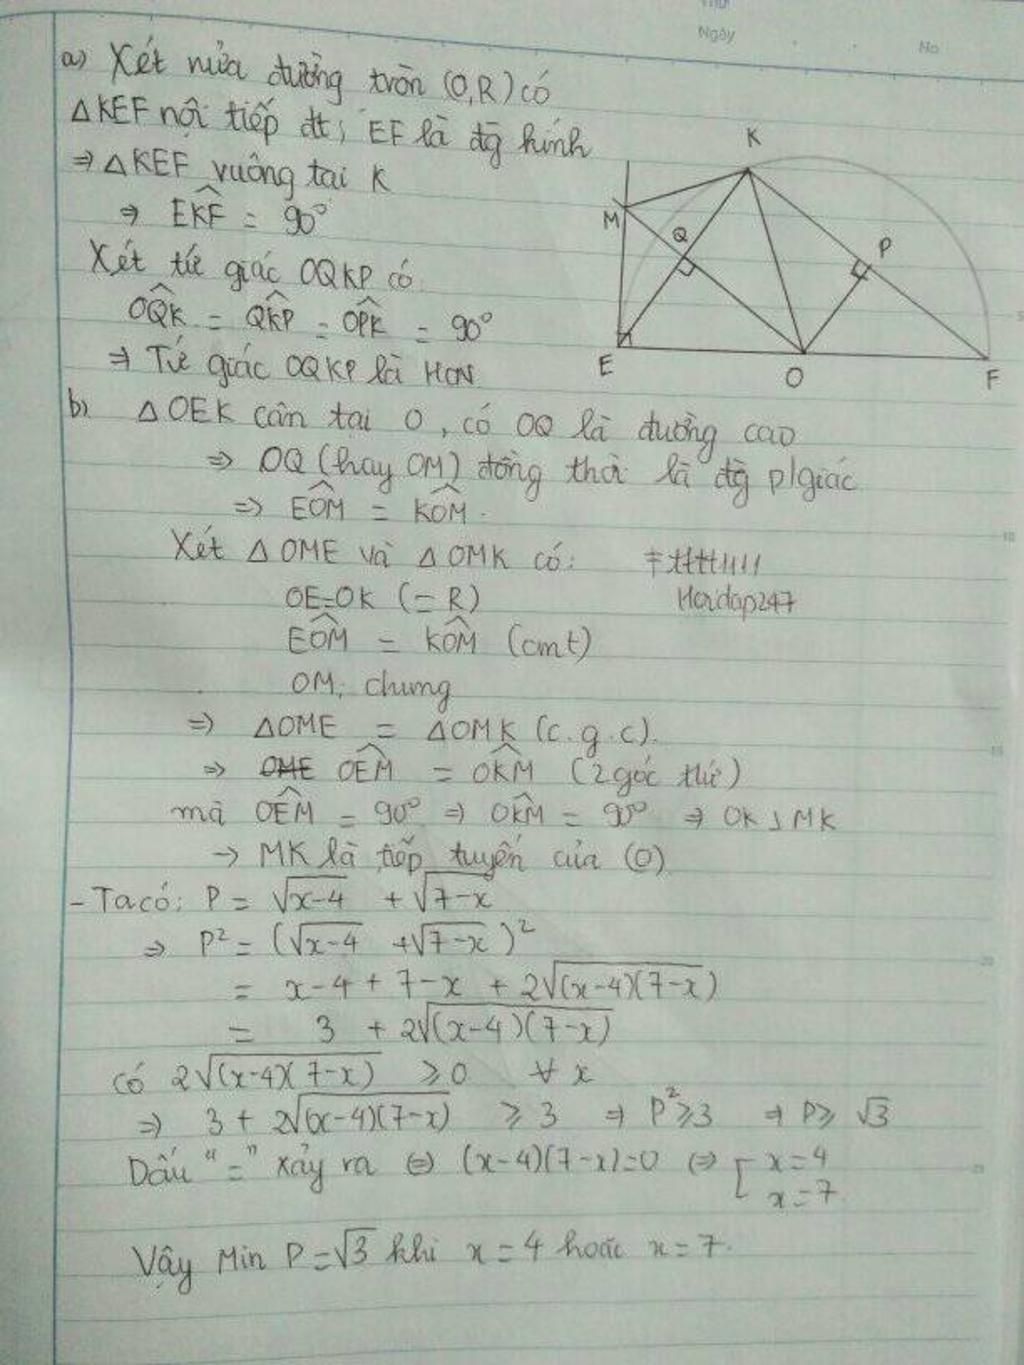 Thứ
Ngày
No
a) Xét nửa đường tròn (O,R) có
△KEF nội tiếp đt; EF là đg kính
⇒ △KEF vuông tại K
⇒ EKF = 90°
Xét tứ giác OQKP có
OQK = QKP = OPK = 90°
⇒ Tứ giác OQKP là HCN
K
M
Q
P
E
O
F
b) △OEK cân tại O, có OQ là đường cao
⇒ OQ (hay OM) đồng thời là đg p/giác
⇒ EOM = KOM.
Xét △OME và △OMK có:
Hoidap247
OE=OK (=R)
EOM = KOM (cmt)
OM: chung
⇒ △OME = △OMK (c.g.c).
⇒ OME OEM = OKM (2 góc t/ứ)
mà OEM = 90° ⇒ OKM = 90° ⇒ OK⊥MK
→ MK là tiếp tuyến của (O)
- Ta có: P = √x-4 + √7-x
⇒ P² = (√x-4 + √7-x)²
= x-4+7-x + 2√(x-4)(7-x)
= 3 + 2√(x-4)(7-x)
Có 2√(x-4)(7-x) ⩾ 0 ∀x
⇒ 3 + 2√(x-4)(7-x) ⩾ 3 ⇒ P² ⩾ 3 ⇒ P ⩾ √3
Dấu "=" xảy ra ⇔ (x-4)(7-x)=0 ⇔ [ x=4
x=7
Vậy Min P = √3 khi x = 4 hoặc x = 7.